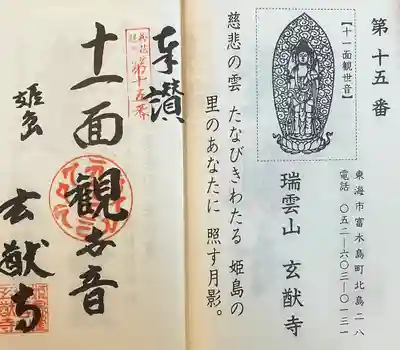 第十五番
【十一面観世音】
瑞雲山 玄猷寺
東海市富木島町北島二八
電話 〇五二―六〇三―〇一三一
慈悲の雲 たなびきわたる 姫島の
里のあなたに 照す月影。
奉讃
第十五番
十一面観世音
姫島
玄猷寺